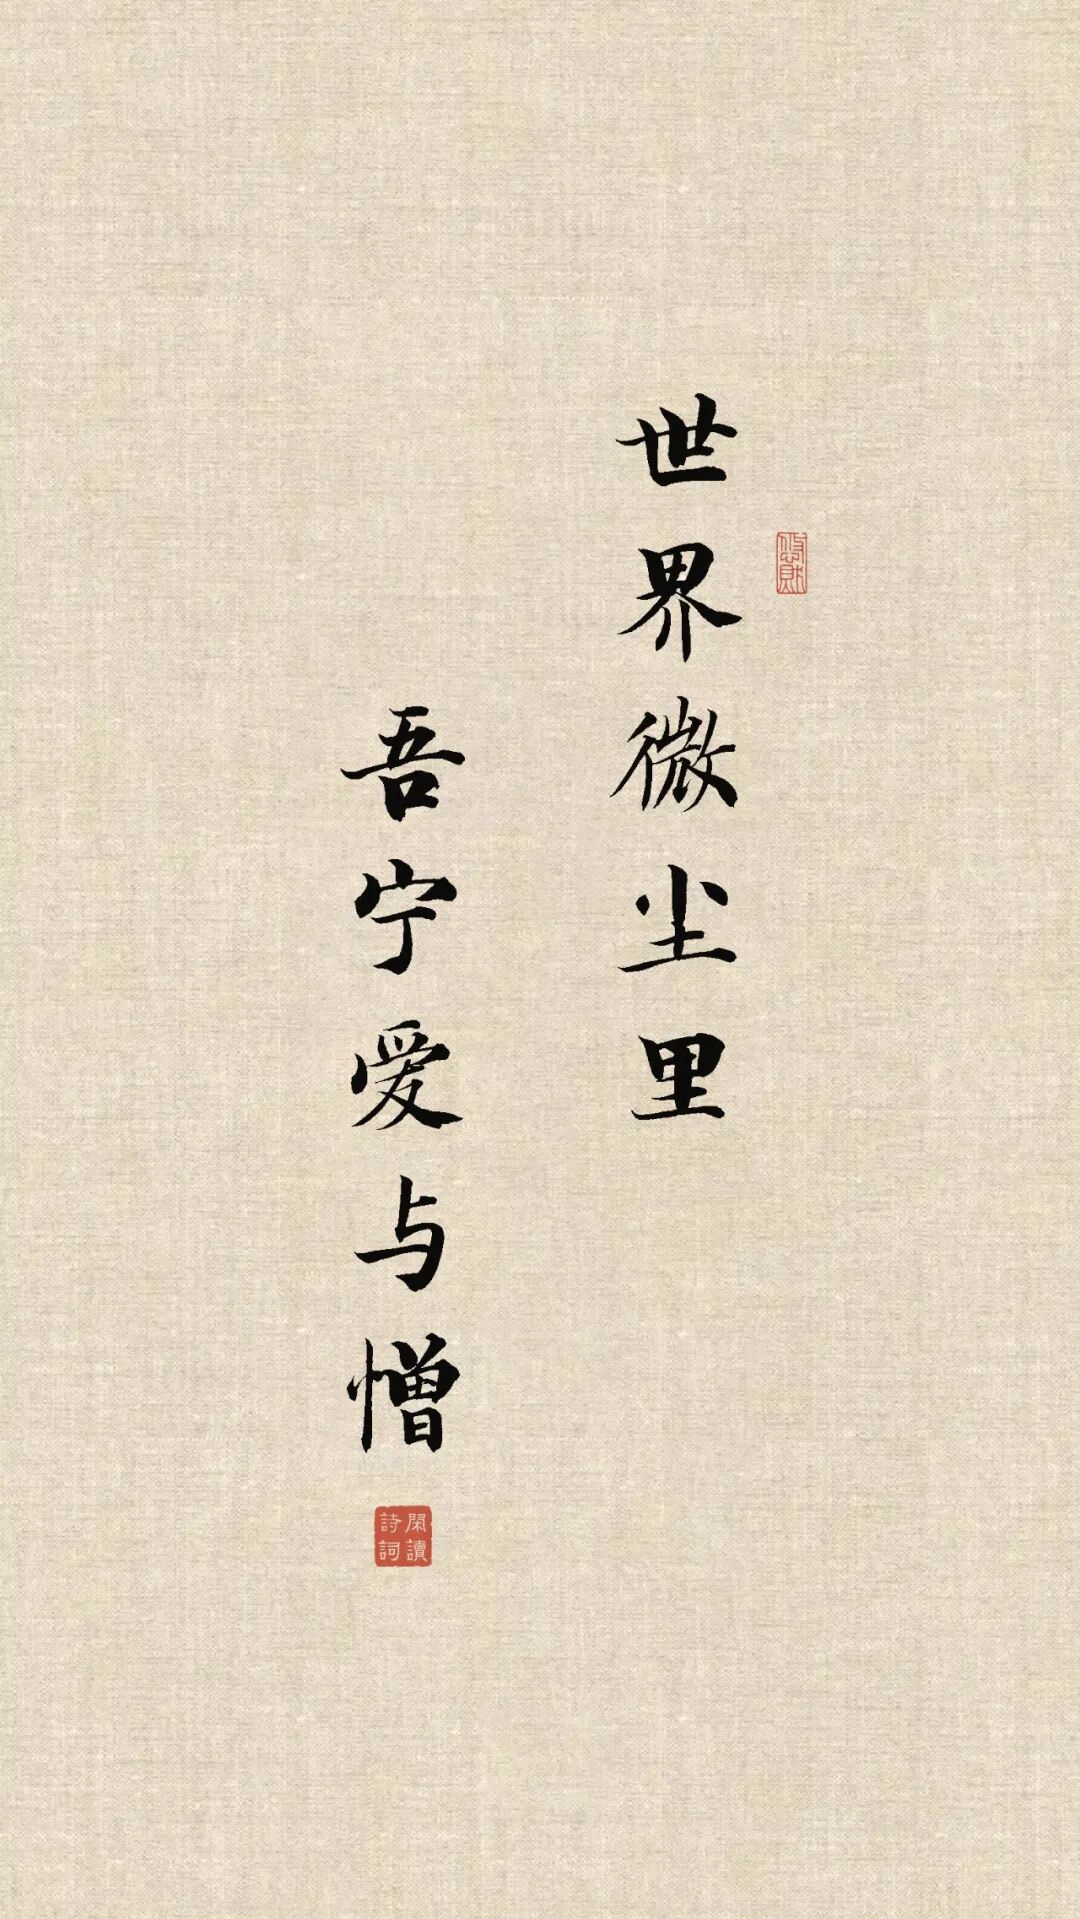 世界微尘里
吾宁爱与憎
閑讀
詩詞